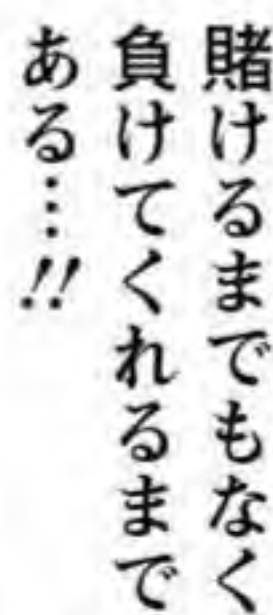 賭けるまでもなく
負けてくれるまで
ある…!!